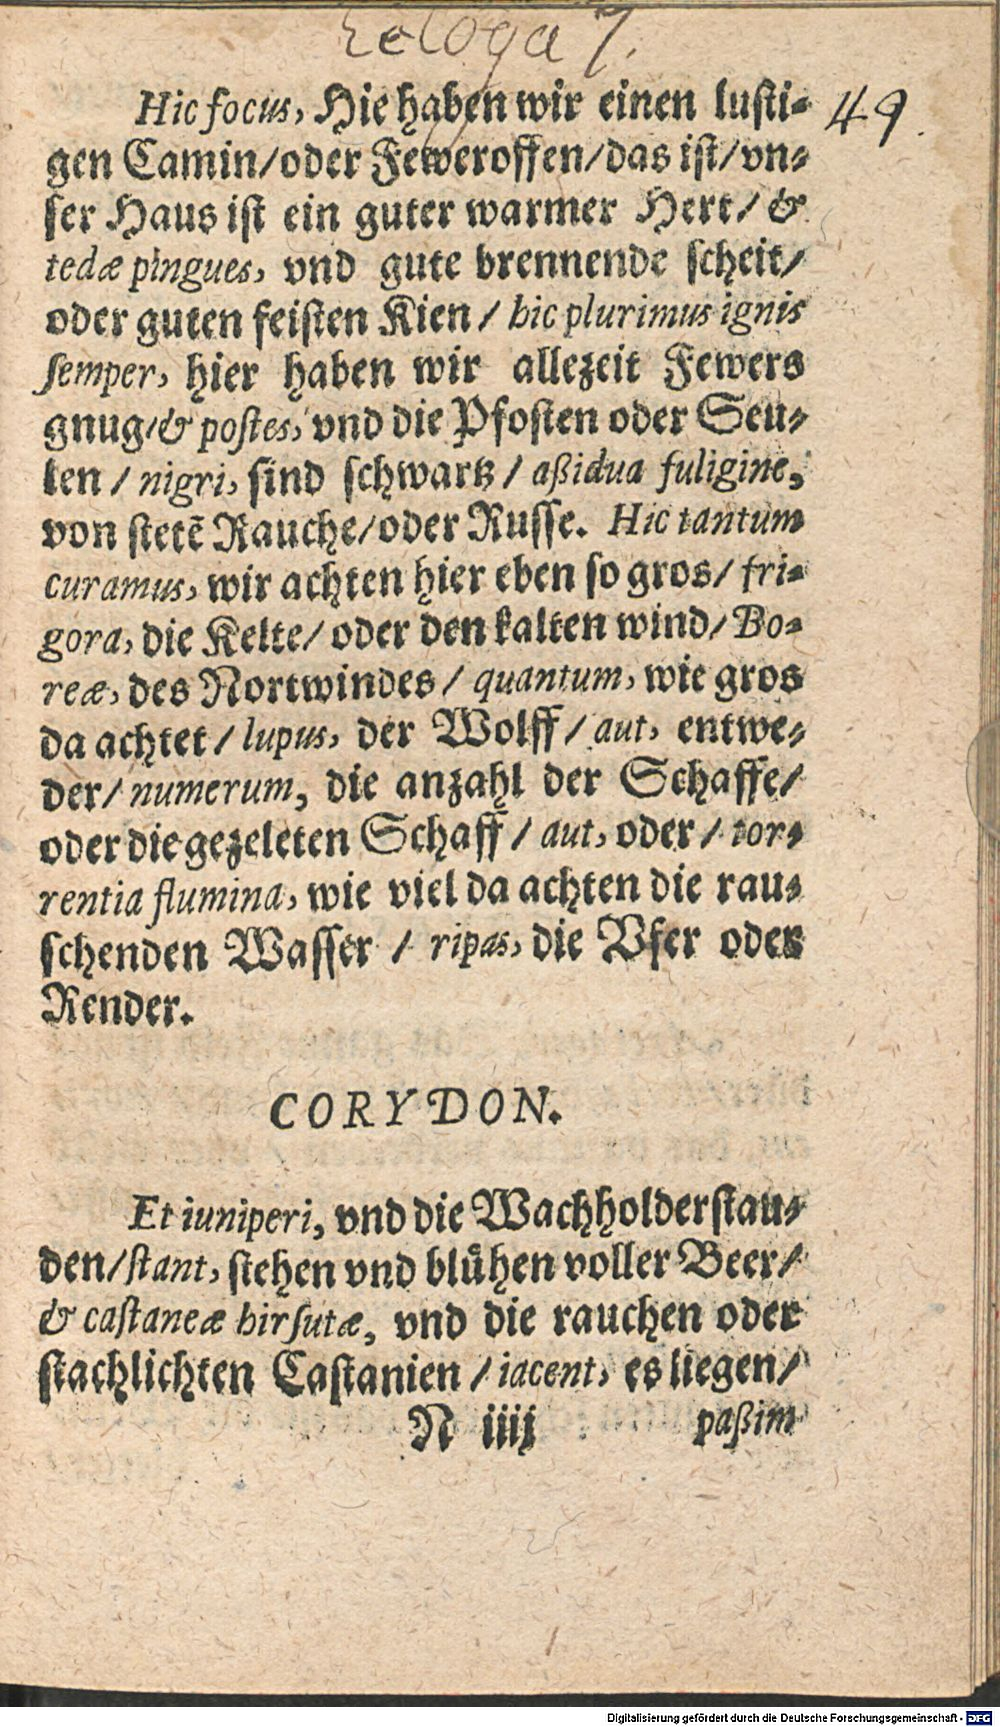 Ecloga 7.
49.
Hic focus, Hie haben wir einen lusti-
gen Camin/oder Feweroffen/das ist/vn-
ser Haus ist ein guter warmer Hert/ &
tedæ pingues, vnd gute brennende scheit/
oder guten feisten Kien / hic plurimus ignis
semper, hier haben wir allezeit Fewers
gnug/& postes, vnd die Pfosten oder Seu-
len / nigri, sind schwartz / aßidua fuligine,
von stetẽ Rauche/oder Russe. Hic tantum
curamus, wir achten hier eben so gros/ fri-
gora, die Kelte/ oder den kalten wind/ Bo-
reæ, des Nortwindes/ quantum, wie gros
da achtet / lupus, der Wolff / aut, entwe-
der/ numerum, die anzahl der Schaffe/
oder die gezeleten Schaff / aut, oder / tor-
rentia flumina, wie viel da achten die rau-
schenden Wasser / ripas, die Vfer oder
Render.
CORYDON.
Et iuniperi, vnd die Wachholderstau-
den/stant, stehen vnd blůhen voller Beer/
& castaneæ hirsutæ, vnd die rauchen oder
stachlichten Castanien / iacent, es liegen/
N iiij paßim
Digitalisierung gefördert durch die Deutsche Forschungsgemeinschaft - DFG